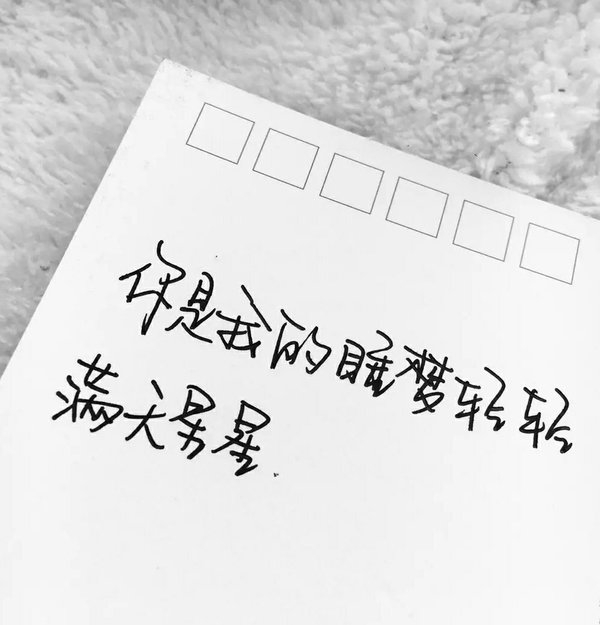 你是我的睡梦轻轻
满天星星.